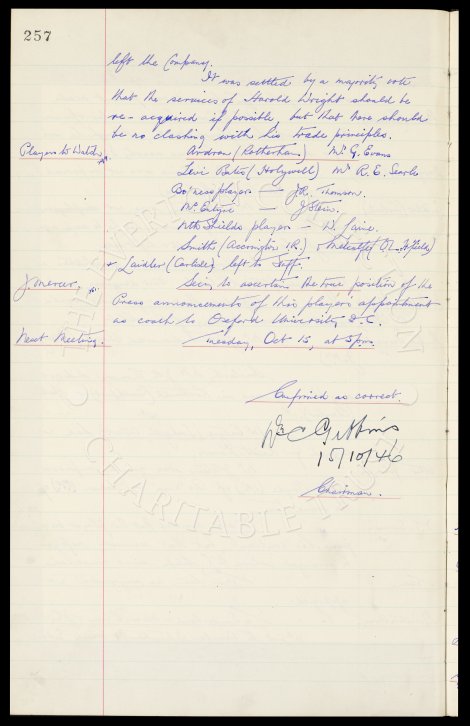 257
left the Company.
It was settled by a majority vote
that the services of Harold Wright should be
re-acquired if possible, but that there should
be no clashing with his trade principles.
Players to Watch
(Rotherham) Mr G. Evans
Levi Bates (Holywell) Mr R. E. Searle
Bo'ness players — J.R. Thomson.
— J Stein.
Nth Shields players — W. Laine.
Smith, (Accrington I.R.) & Metcalfe
& Laidler (Carlisle) left to Staff.
J. Mercer.
Secy to ascertain the true position of the
Press announcements of this player's appointment
as coach to Oxford University F.C.
Next Meeting.
Tuesday, Oct 15, at 5pm.
Confirmed as correct.
W C Gibbins
15/10/46
Chairman.
THE EVERTON
CHARITABLE TRUST